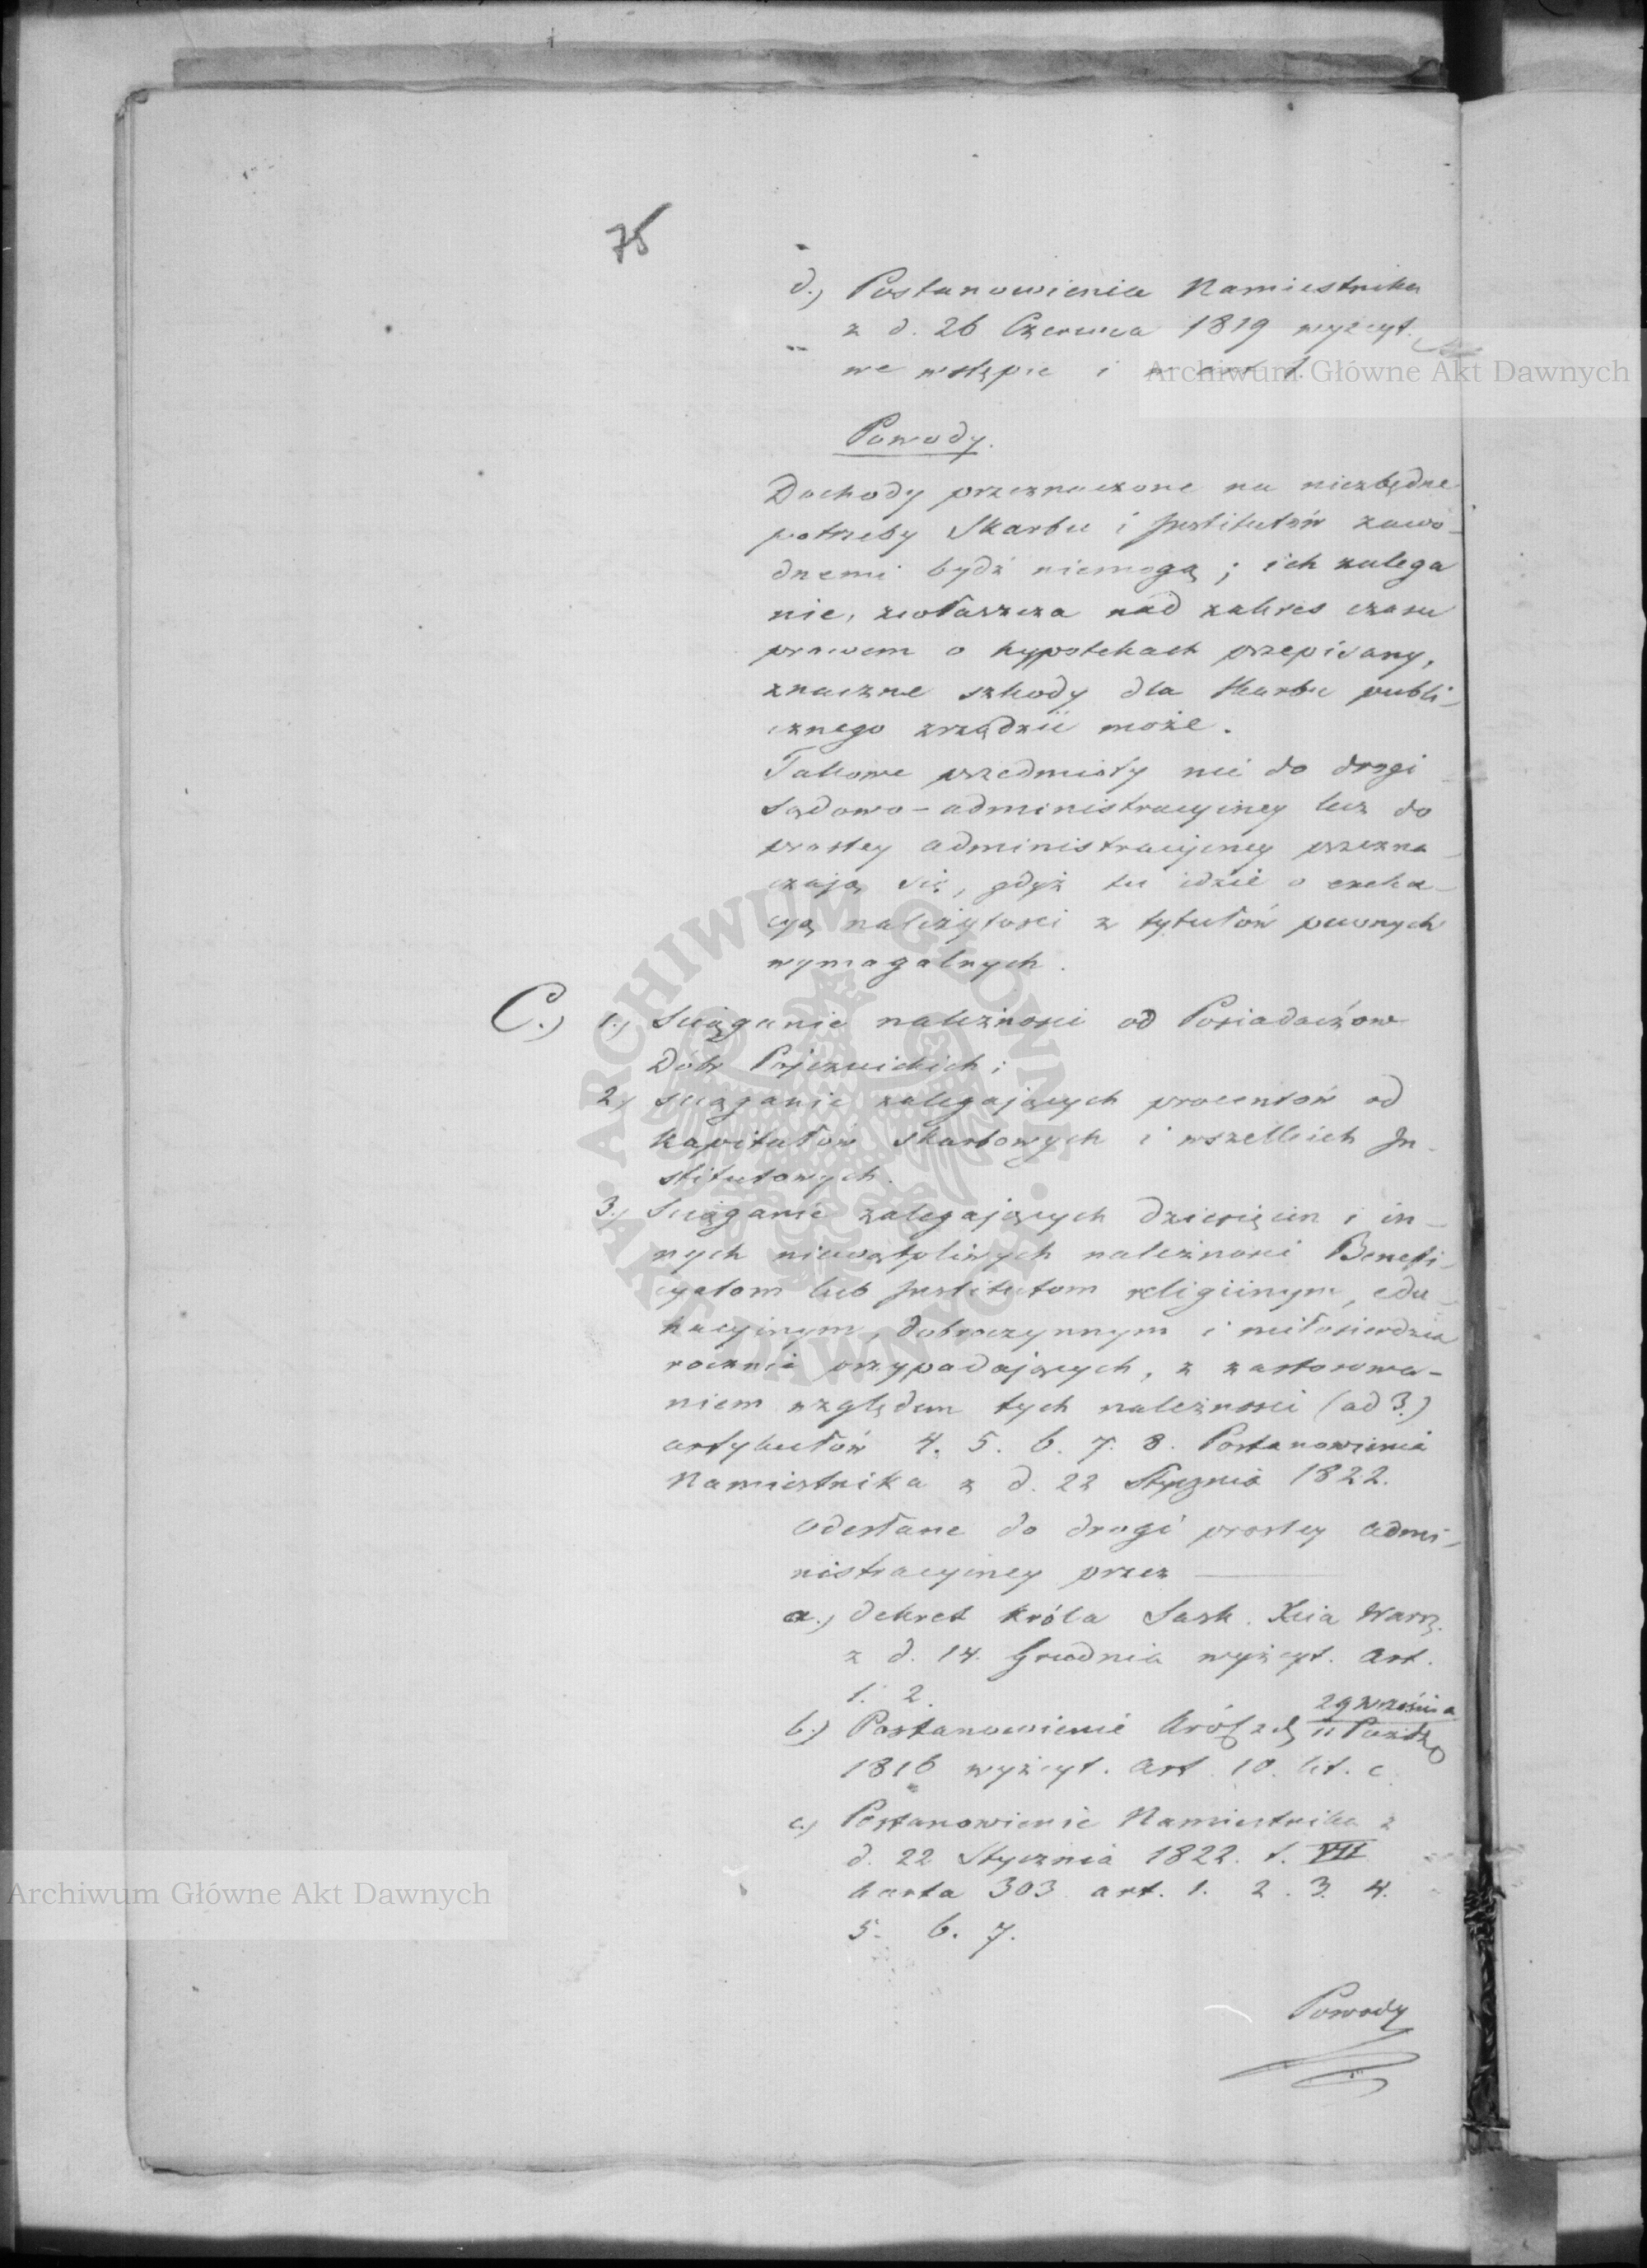 75
d.) Postanowienia Namiestnika
z d. 26 Czerwca 1819 wyżcyt.
we wstępie i w art 1.
Powody.
Dochody przeznaczone na niezbędne
potrzeby Skarbu i Institutów zawo-
dnemi bydź niemogą; ich zalega
nie, zwłaszcza nad zakres czasu
prawem o hypotekach przepisany,
znaczne szkody dla skarbu publi-
cznego zrządzić może.
Takowe przedmioty nie do drogi
Sądowo-administracyjney lecz do
prostey administracyjney przezna-
czają się, gdyż tu idzie o exeku-
cyą należytości z tytułów pewnych
wymagalnych.
C.) 1.) Sciąganie należności od Posiadaczów
Dóbr Pojezuickich;
2.) sciąganie zalegających procentów od
kapitałów skarbowych i wszelkich In-
stitutowych.
3.) Sciąganie zalegających dziesięcin i in-
nych niewątpliwych należności Benefi-
cyatom lub Institutom religiinym, edu-
kacyinym, dobroczynnym i miłosierdzia
rocznie przypadających, z zastosowa-
niem względem tych należności (ad 3.)
artykułów 4. 5. 6. 7. 8. Postanowienia
Namiestnika z d. 22 Stycznia 1822.
Odesłane do drogi prostey admi-
nistracyiney przez
a.) dekret Króla Sask. Xcia Warsz.
z d. 14. Grudnia wyżcyt. Art.
1. 2.
b.) Postanowienie Król z d. 29 Września
11 Paźdz
1816 wyżcyt. Art. 10. lit. c.
c.) Postanowienie Namiestnika z
d. 22 Stycznia 1822. t. VII
karta 303. art. 1. 2. 3. 4.
5. 6. 7.
Powody
Archiwum Główne Akt Dawnych
Archiwum Główne Akt Dawnych
ARCHIWUM GŁÓWNE
AKT DAWNYCH